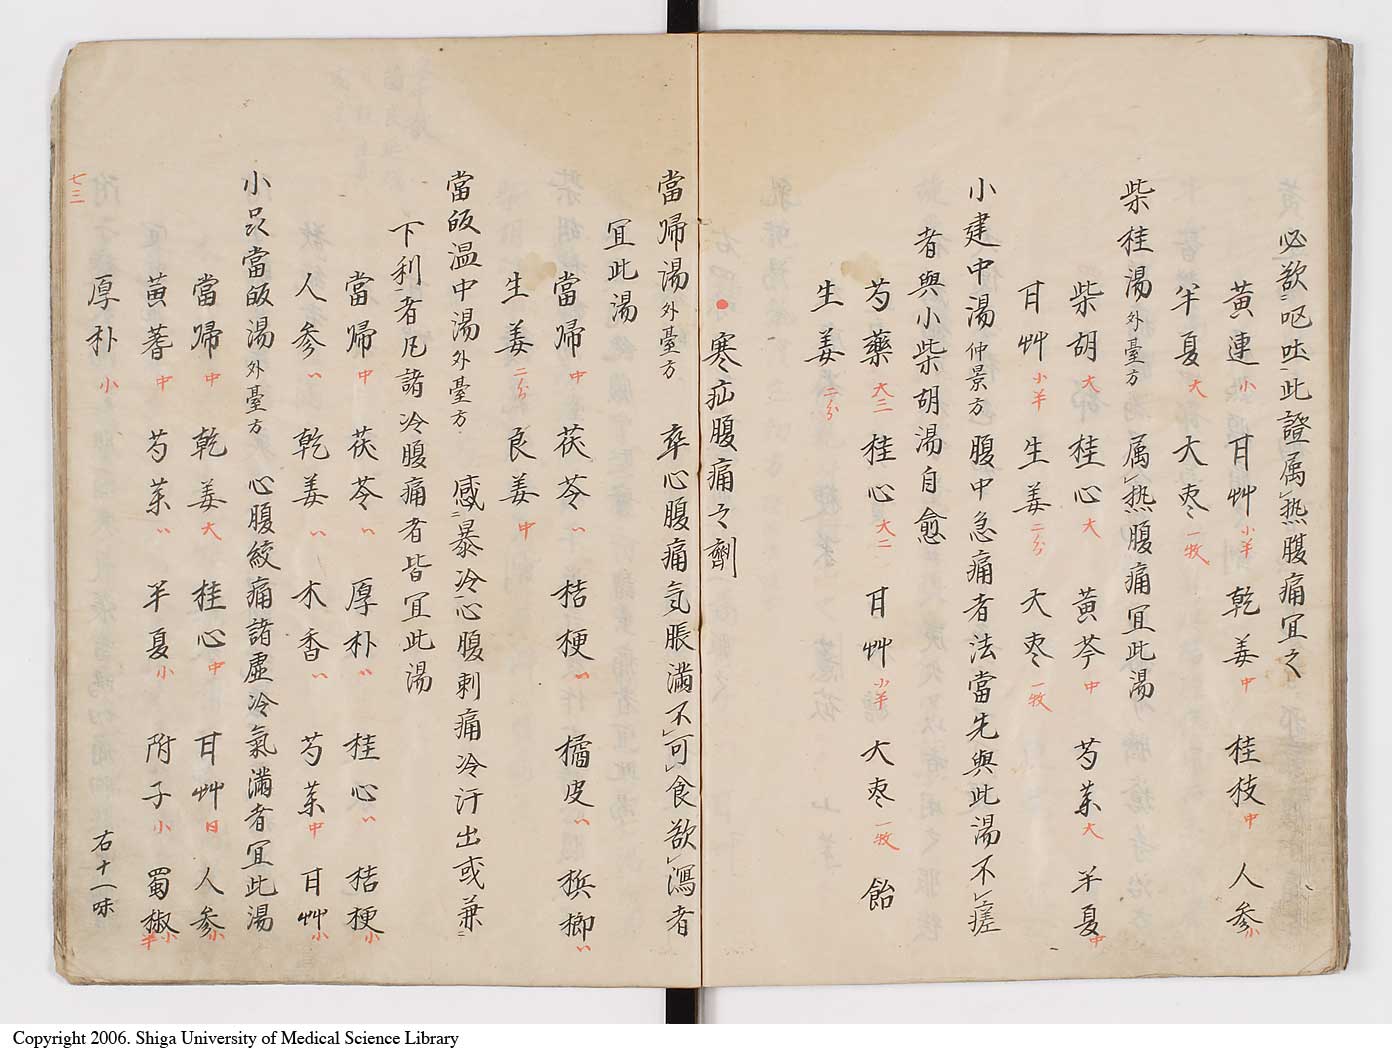 必欲嘔吐此證属熱腹痛宜之
黄連小 甘艸小半 乾姜中 桂枝中 人参小
半夏大 大枣一枚
柴桂湯外臺方 属熱腹痛宜此湯
柴胡大 桂心大 黄芩中 芍薬大 半夏中
甘艸小半 生姜二分 大枣一枚
小建中湯仲景方 腹中急痛者法當先與此湯不差
者與小柴胡湯自愈
芍藥大三 桂心大二 甘艸小半 大枣一枚 飴
生姜二分
寒疝腹痛之劑
當帰湯外臺方 卒心腹痛気脹満不可食欲瀉者
宜此湯
當帰中 茯苓〃 桔梗〃 橘皮〃 檳榔〃
生姜二分 良姜中
當皈温中湯外臺方 感暴冷心腹刺痛冷汗出或兼
下利者凡諸冷腹痛者皆宜此湯
當帰中 茯苓〃 厚朴〃 桂心〃 桔梗小
人参〃 乾姜〃 木香〃 芍薬中 甘艸小
小品當皈湯外臺方 心腹絞痛諸虚冷氣満者宜此湯
當帰中 乾姜大 桂心中 甘艸 人参小
黄蓍中 芍薬〃 半夏小 附子小 蜀椒小半
厚朴小 右十一味
七三
Copyright 2006. Shiga University of Medical Science Library